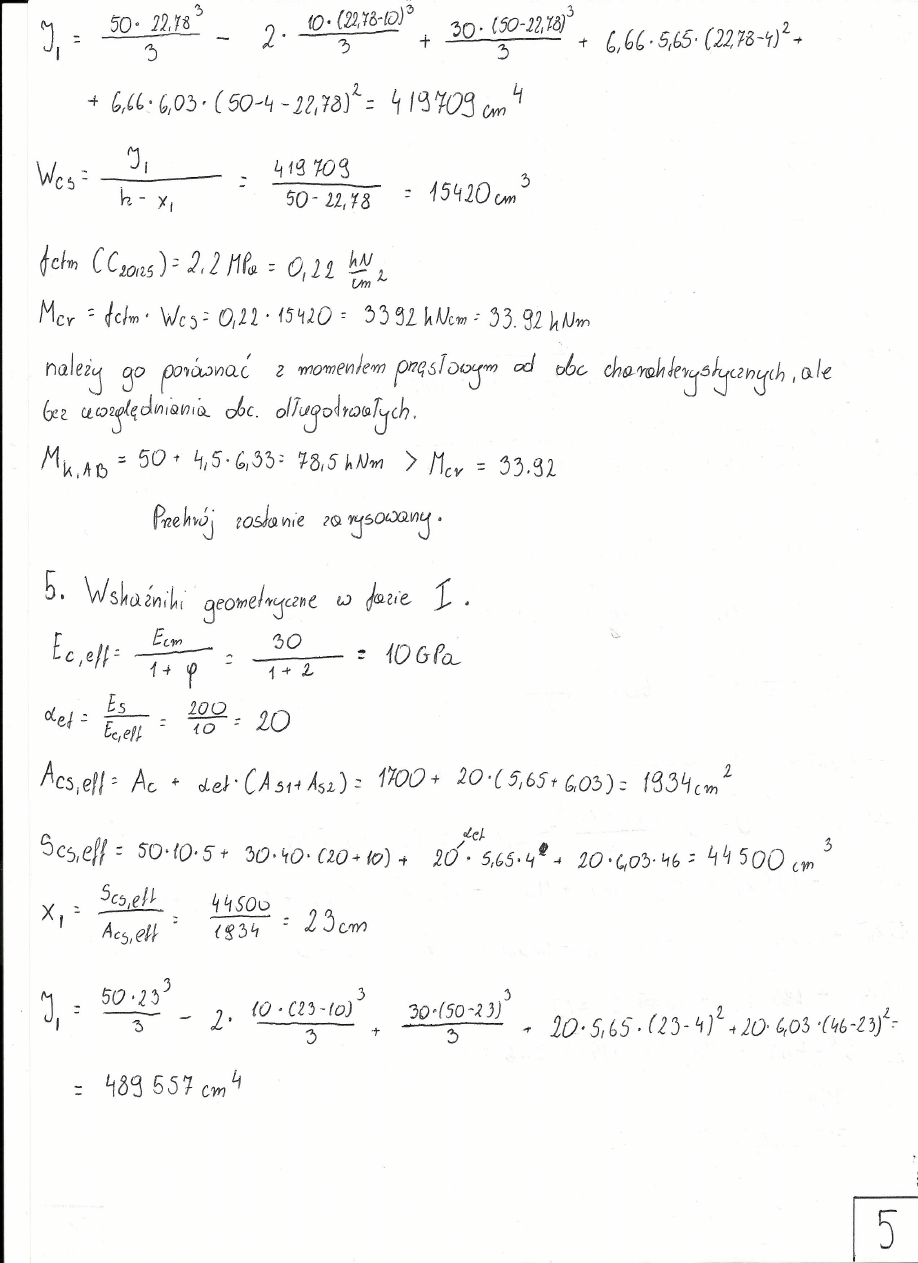 J₁ = 50·22,78³/3 - 2·10·(22,78-10)³/3 + 30·(50-22,78)³/3 + 6,66·5,65·(22,78-4)² +
+ 6,66·6,03·(50-4-22,78)² = 419709 cm⁴
Wcs = J₁/(h-x₁) = 419709/(50-22,78) = 15420 cm³
fctm (C20/25) = 2.2 MPa = 0,22 kN/cm²
Mcr = fctm · Wcs = 0,22 · 15420 = 3392 kNcm = 33.92 kNm
należy go porównać z momentem przęsłowym od obc charakterystycznych, ale
bez uwzględniania obc. długotrwałych.
Mk,AB = 50 + 4,5·6,33 = 78,5 kNm > Mcr = 33.92
Przekrój zostanie zarysowany.
5. Wskaźniki geometryczne w fazie I.
Ec,eff = Ecm/(1+φ) = 30/(1+2) = 10 GPa
αet = Es/Ec,eff = 200/10 = 20
Acs,eff = Ac + αet·(As1+As2) = 1700 + 20·(5,65+6,03) = 1934 cm²
αet
Scs,eff = 50·10·5 + 30·40·(20+10) + 20·5,65·4 + 20·6,03·46 = 44500 cm³
x₁ = Scs,eff/Acs,eff = 44500/1934 = 23 cm
J₁ = 50·23³/3 - 2·10·(23-10)³/3 + 30·(50-23)³/3 + 20·5,65·(23-4)² + 20·6,03·(46-23)² =
= 489 557 cm⁴
5